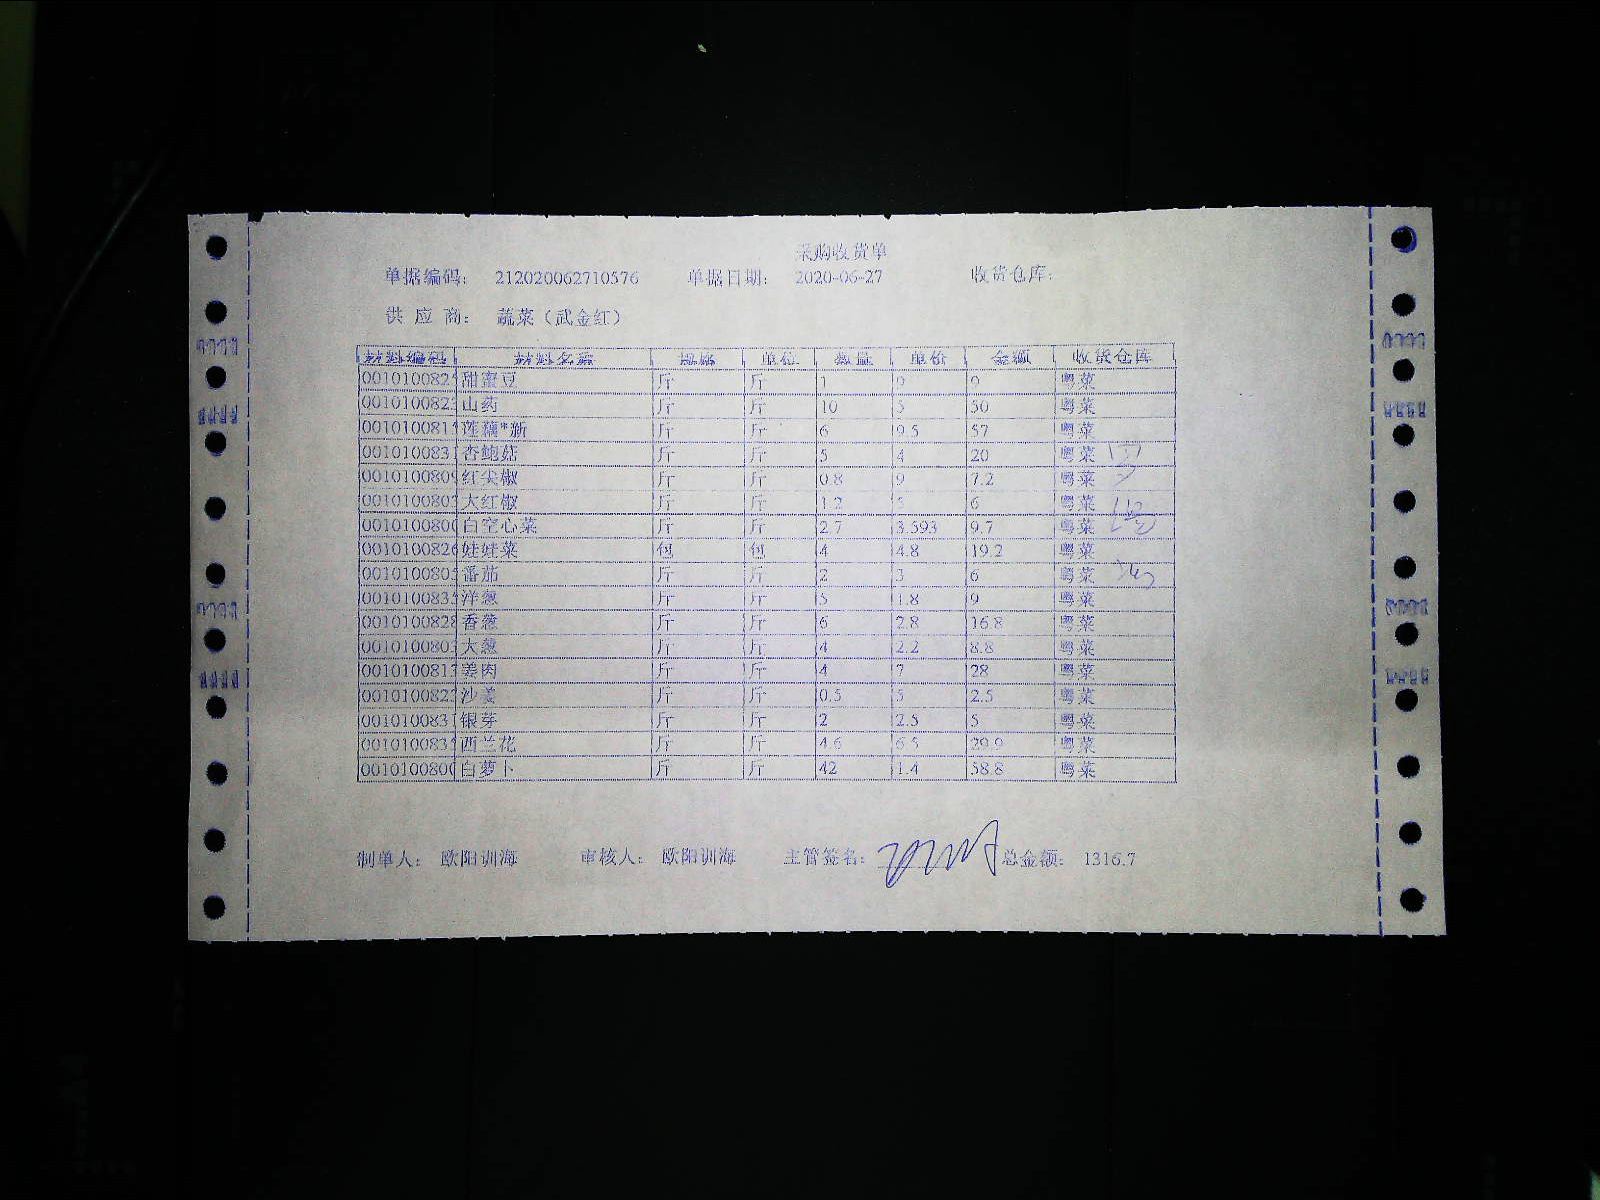 采购收货单
单据编码： 212020062710576 单据日期： 2020-06-27 收货仓库：
供 应 商： 蔬菜（武金红）
材料编码 材料名称 规格 单位 数量 单价 金额 收货仓库
001010082 甜蜜豆 斤 斤 1 9 9 粤菜
001010082 山药 斤 斤 10 5 50 粤菜
001010081 莲藕*新 斤 斤 6 9.5 57 粤菜
001010083 杏鲍菇 斤 斤 5 4 20 粤菜
001010080 红尖椒 斤 斤 0.8 9 7.2 粤菜
001010080 大红椒 斤 斤 1.2 5 6 粤菜
001010080 白空心菜 斤 斤 2.7 3.593 9.7 粤菜
001010082 娃娃菜 包 包 4 4.8 19.2 粤菜
001010080 番茄 斤 斤 2 3 6 粤菜
001010083 洋葱 斤 斤 5 1.8 9 粤菜
001010082 香葱 斤 斤 6 2.8 16.8 粤菜
001010080 大葱 斤 斤 4 2.2 8.8 粤菜
001010081 姜肉 斤 斤 4 7 28 粤菜
001010082 沙姜 斤 斤 0.5 5 2.5 粤菜
001010083 银芽 斤 斤 2 2.5 5 粤菜
001010083 西兰花 斤 斤 4.6 6.5 29.9 粤菜
001010080 白萝卜 斤 斤 42 1.4 58.8 粤菜
制单人： 欧阳训海 审核人： 欧阳训海 主管签名： 总金额： 1316.7